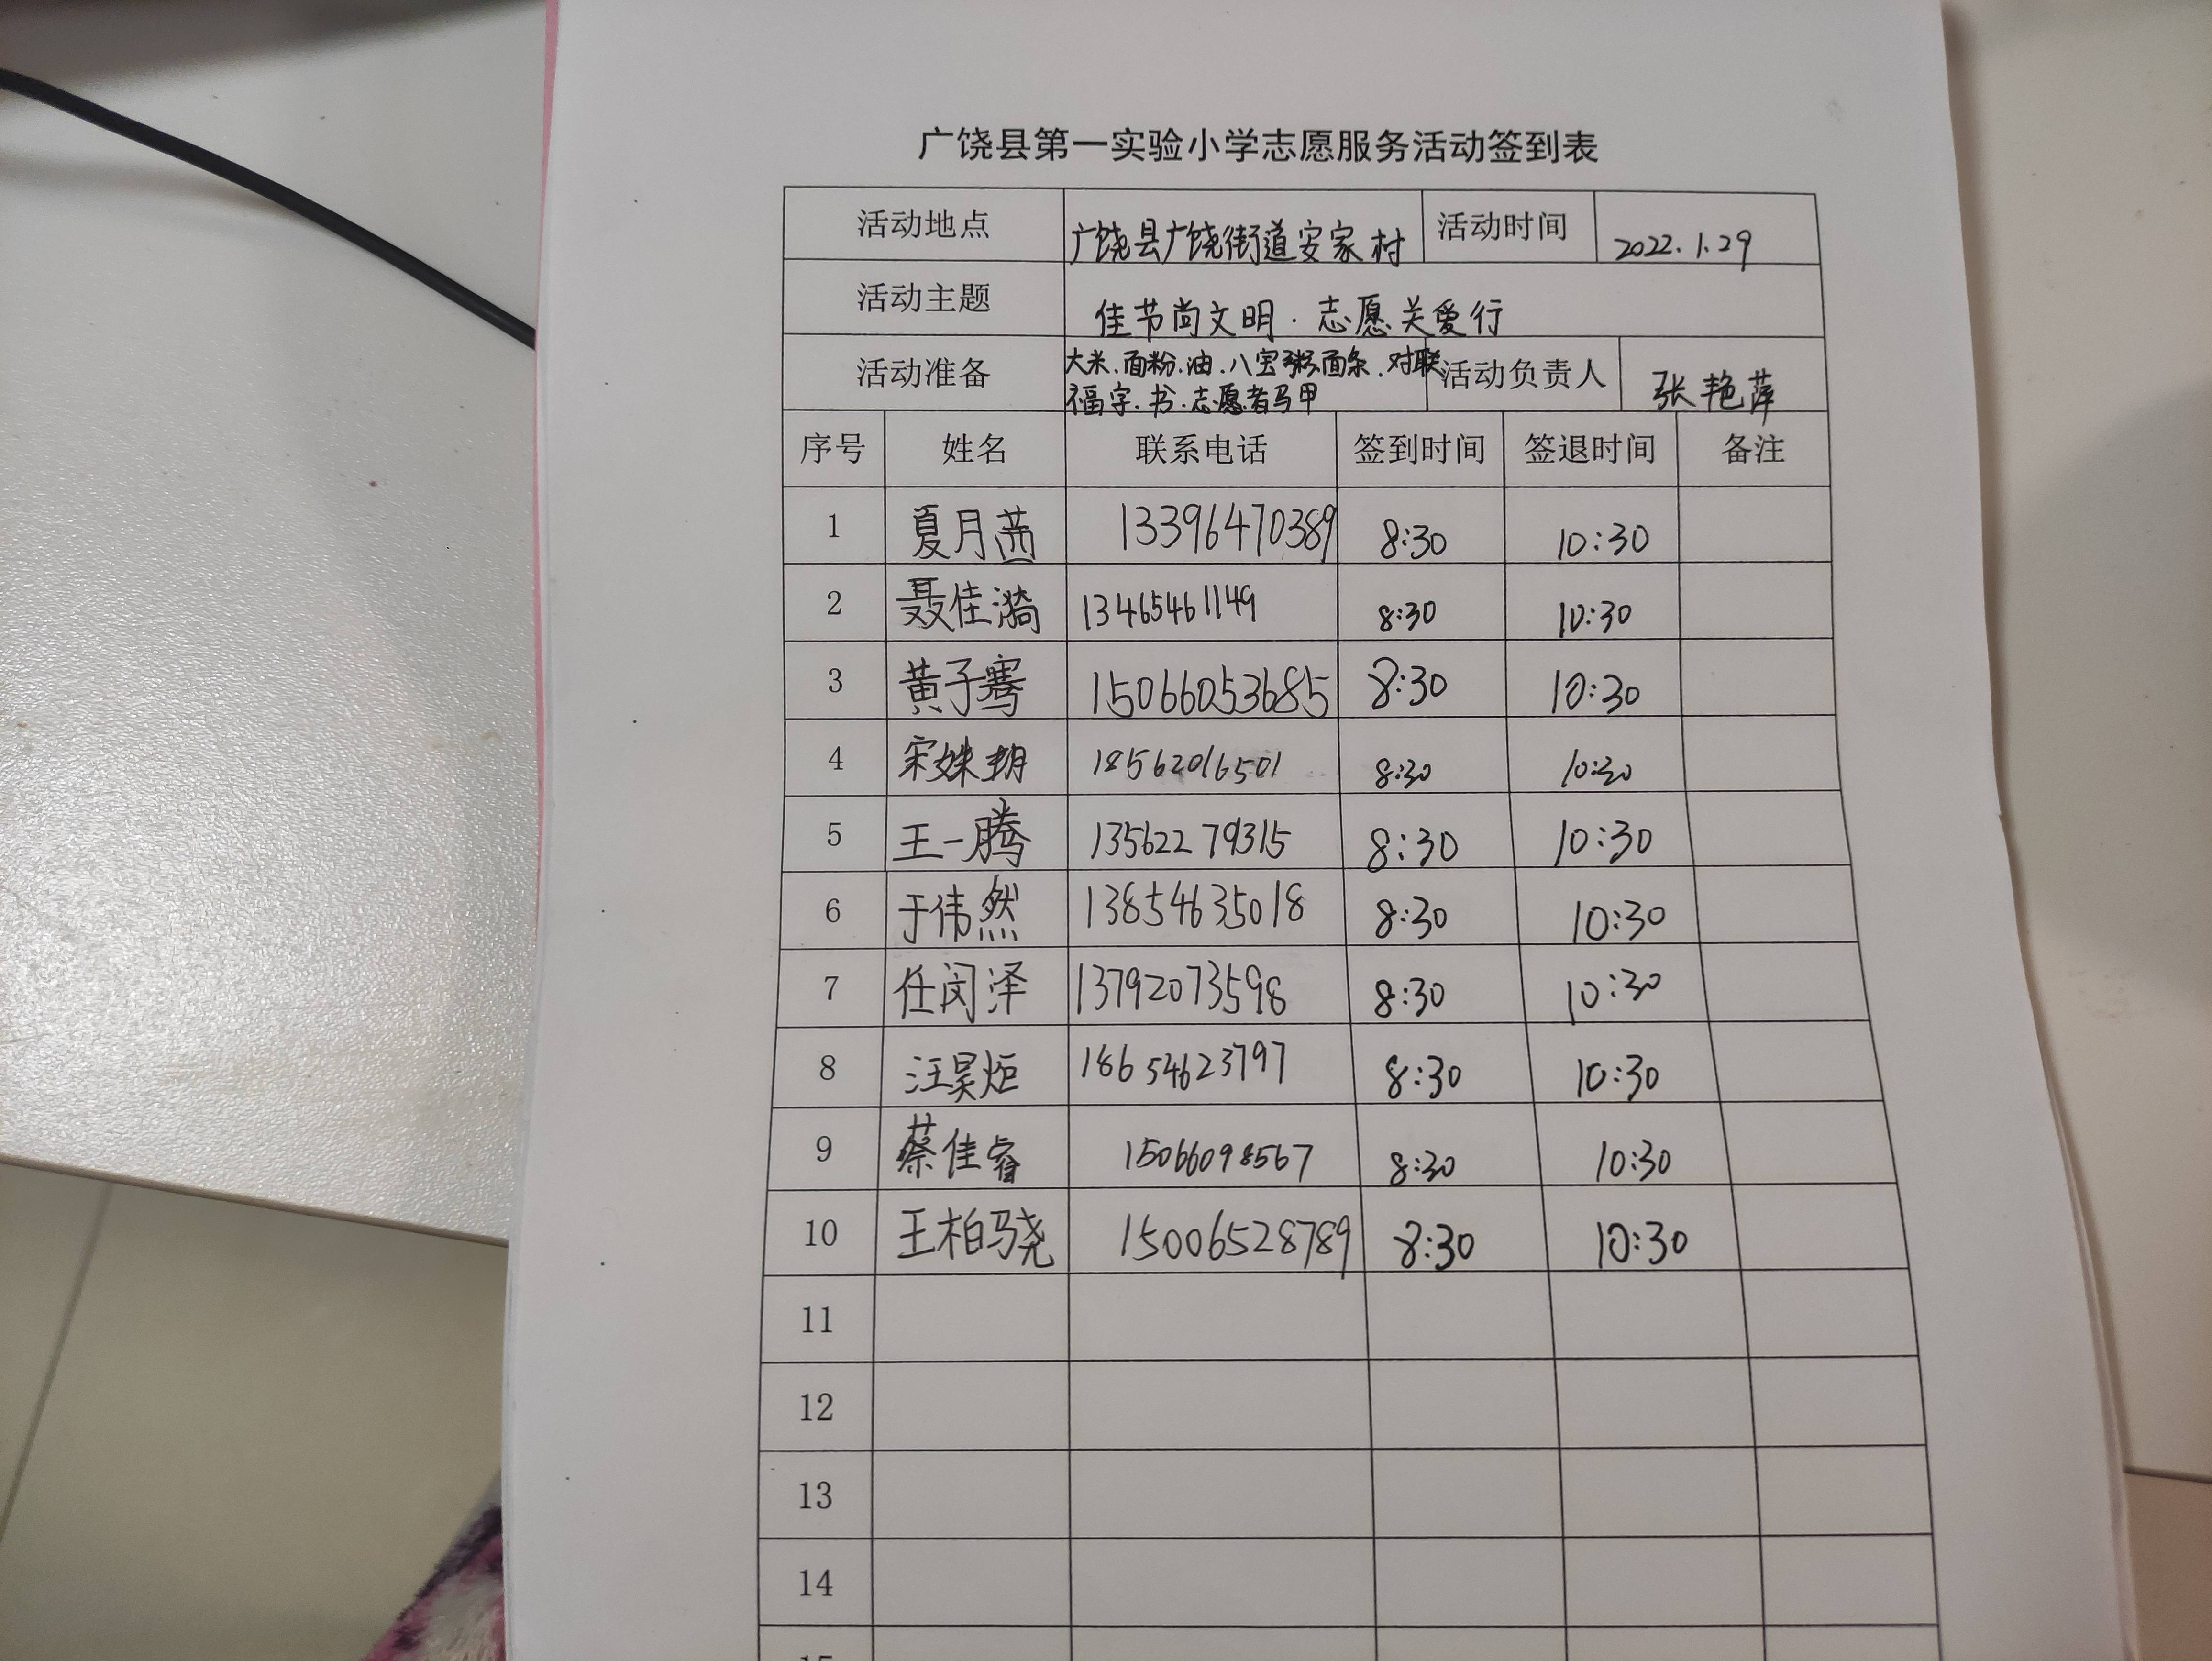 广饶县第一实验小学志愿服务活动签到表
活动地点 广饶县广饶街道安家村 活动时间 2022.1.29
活动主题 佳节尚文明·志愿关爱行
活动准备 大米.面粉.油.八宝粥.面条.对联 活动负责人 张艳萍
福字.书.志愿者马甲
序号 姓名 联系电话 签到时间 签退时间 备注
1 夏月茜 13396470389 8:30 10:30
2 聂佳漪 13465461149 8:30 10:30
3 黄子骞 15066053685 8:30 10:30
4 宋姝玥 18562016501 8:30 10:30
5 王一腾 13562279315 8:30 10:30
6 于伟然 13854635018 8:30 10:30
7 任闵泽 13792073598 8:30 10:30
8 汪昊炬 18654623797 8:30 10:30
9 蔡佳睿 15066098567 8:30 10:30
10 王柏骁 15006528789 8:30 10:30
11
12
13
14